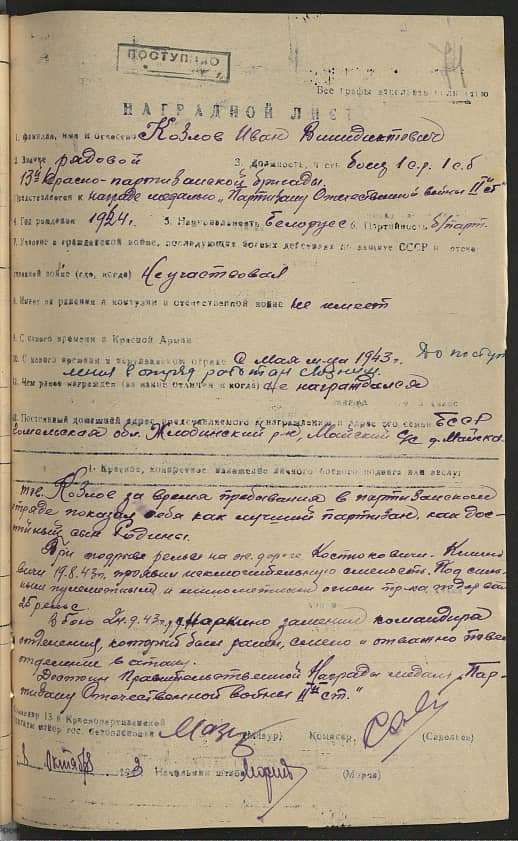 ПОСТУПИЛО
Все графы заполнять полностью
НАГРАДНОЙ ЛИСТ
1. Фамилия, имя и отчество Козлов Иван
2. Звание рядовой 3. Должность, часть боец 1 с.р. 1 с.б
13й Красно-партизанской бригады.
Представляется к награде медалью „Партизану Отечественной войны IIй ст"
4. Год рождения 1924 г. 5. Национальность Белорус 6. Партийность б/парт.
7. Участие в гражданской войне, последующих боевых действиях по защите СССР и отече-
ственной войне (где, когда) Не участвовал
8. Имеет ли ранения и контузии в отечественной войне не имеет
9. С какого времени в Красной Армии
10. С какого времени в партизанском отряде С Мая м-ца 1943 г. До поступ
ления в отряд работал
11. Чем ранее награжден (за какие отличия и когда) не награждался
12. Постоянный домашний адрес представляемого к награждению и адрес его семьи БССР
Гомельская обл. Жлобинский р-н, Майский с/с д. Майск.
1. Краткое, конкретное изложение личного боевого подвига или заслуг
тов. Козлов за время пребывания в партизанском
отряде показал себя как лучший партизан, как дос-
тойный сын Родины.
При подрыве рельс на жел. дороге Костюковичи - Климо
вичи 19.8.43 г. проявил исключительную смелость. Под силь-
ным пулеметным и минометным огнем пр-ка подорвал
25 рельс.
В бою 24.9.43 г. д. Маркино заменил командира
отделения, который был ранен, смело и отважно повел
отделение в атаку.
Достоин Правительственной Награды медали „Пар-
тизану Отечественной войны IIй ст."
Командир 13й Краснопартизанской
бригады майор гос. безопасности (Мазур) Комиссар,
Октября 1943 Начальник штаба